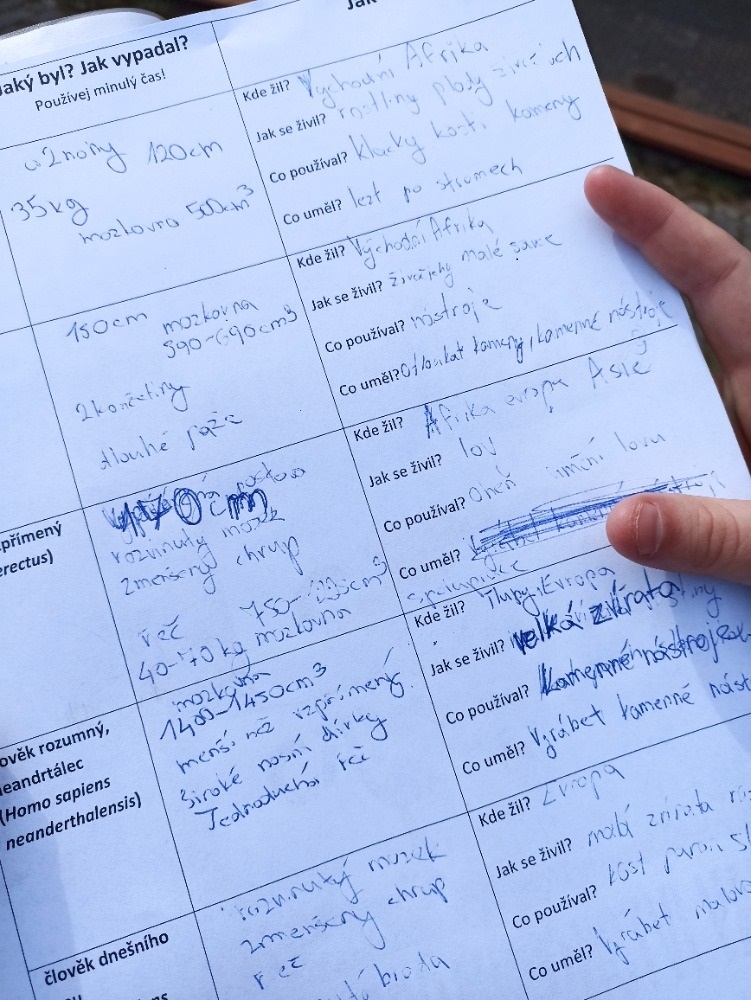 Jaký byl? Jak vypadal?
Používej minulý čas!
Jak
120cm
35kg
mozkovna 500cm³
Kde žil? Východní Afrika
Jak se živil? rostliny plody
Co používal? klacky kosti kameny
Co uměl? lezt po stromech
150cm mozkovna
590-690cm³
2končetiny
dlouhé paže
Kde žil? Východní Afrika
Jak se živil? malé savce
Co používal? nástroje
Co uměl? Otloukat kameny, kamenné nástroje
přímený
erectus)
170cm
rozvinutý mozek
zmenšený chrup
řeč
40-70kg mozkovna
Kde žil? Afrika evropa Asie
Jak se živil? lov
Co používal? Oheň umění lovu
Co uměl?
ověk rozumný,
neandrtálec
(Homo sapiens
neanderthalensis)
mozkovna
1400-1450cm³
menší než vzpřímený
široké nosní dírky
Jednoduchá řeč
Kde žil? Evropa
Jak se živil? velká zvířata
Co používal? kamenné nástroje
Co uměl? Vyrábět kamenné nást
člověk dnešního
rozvinutý mozek
zmenšený chrup
řeč
brada
Kde žil? Evropa
Jak se živil? malá zvířata
Co používal? kost
Co uměl? Vyrábět